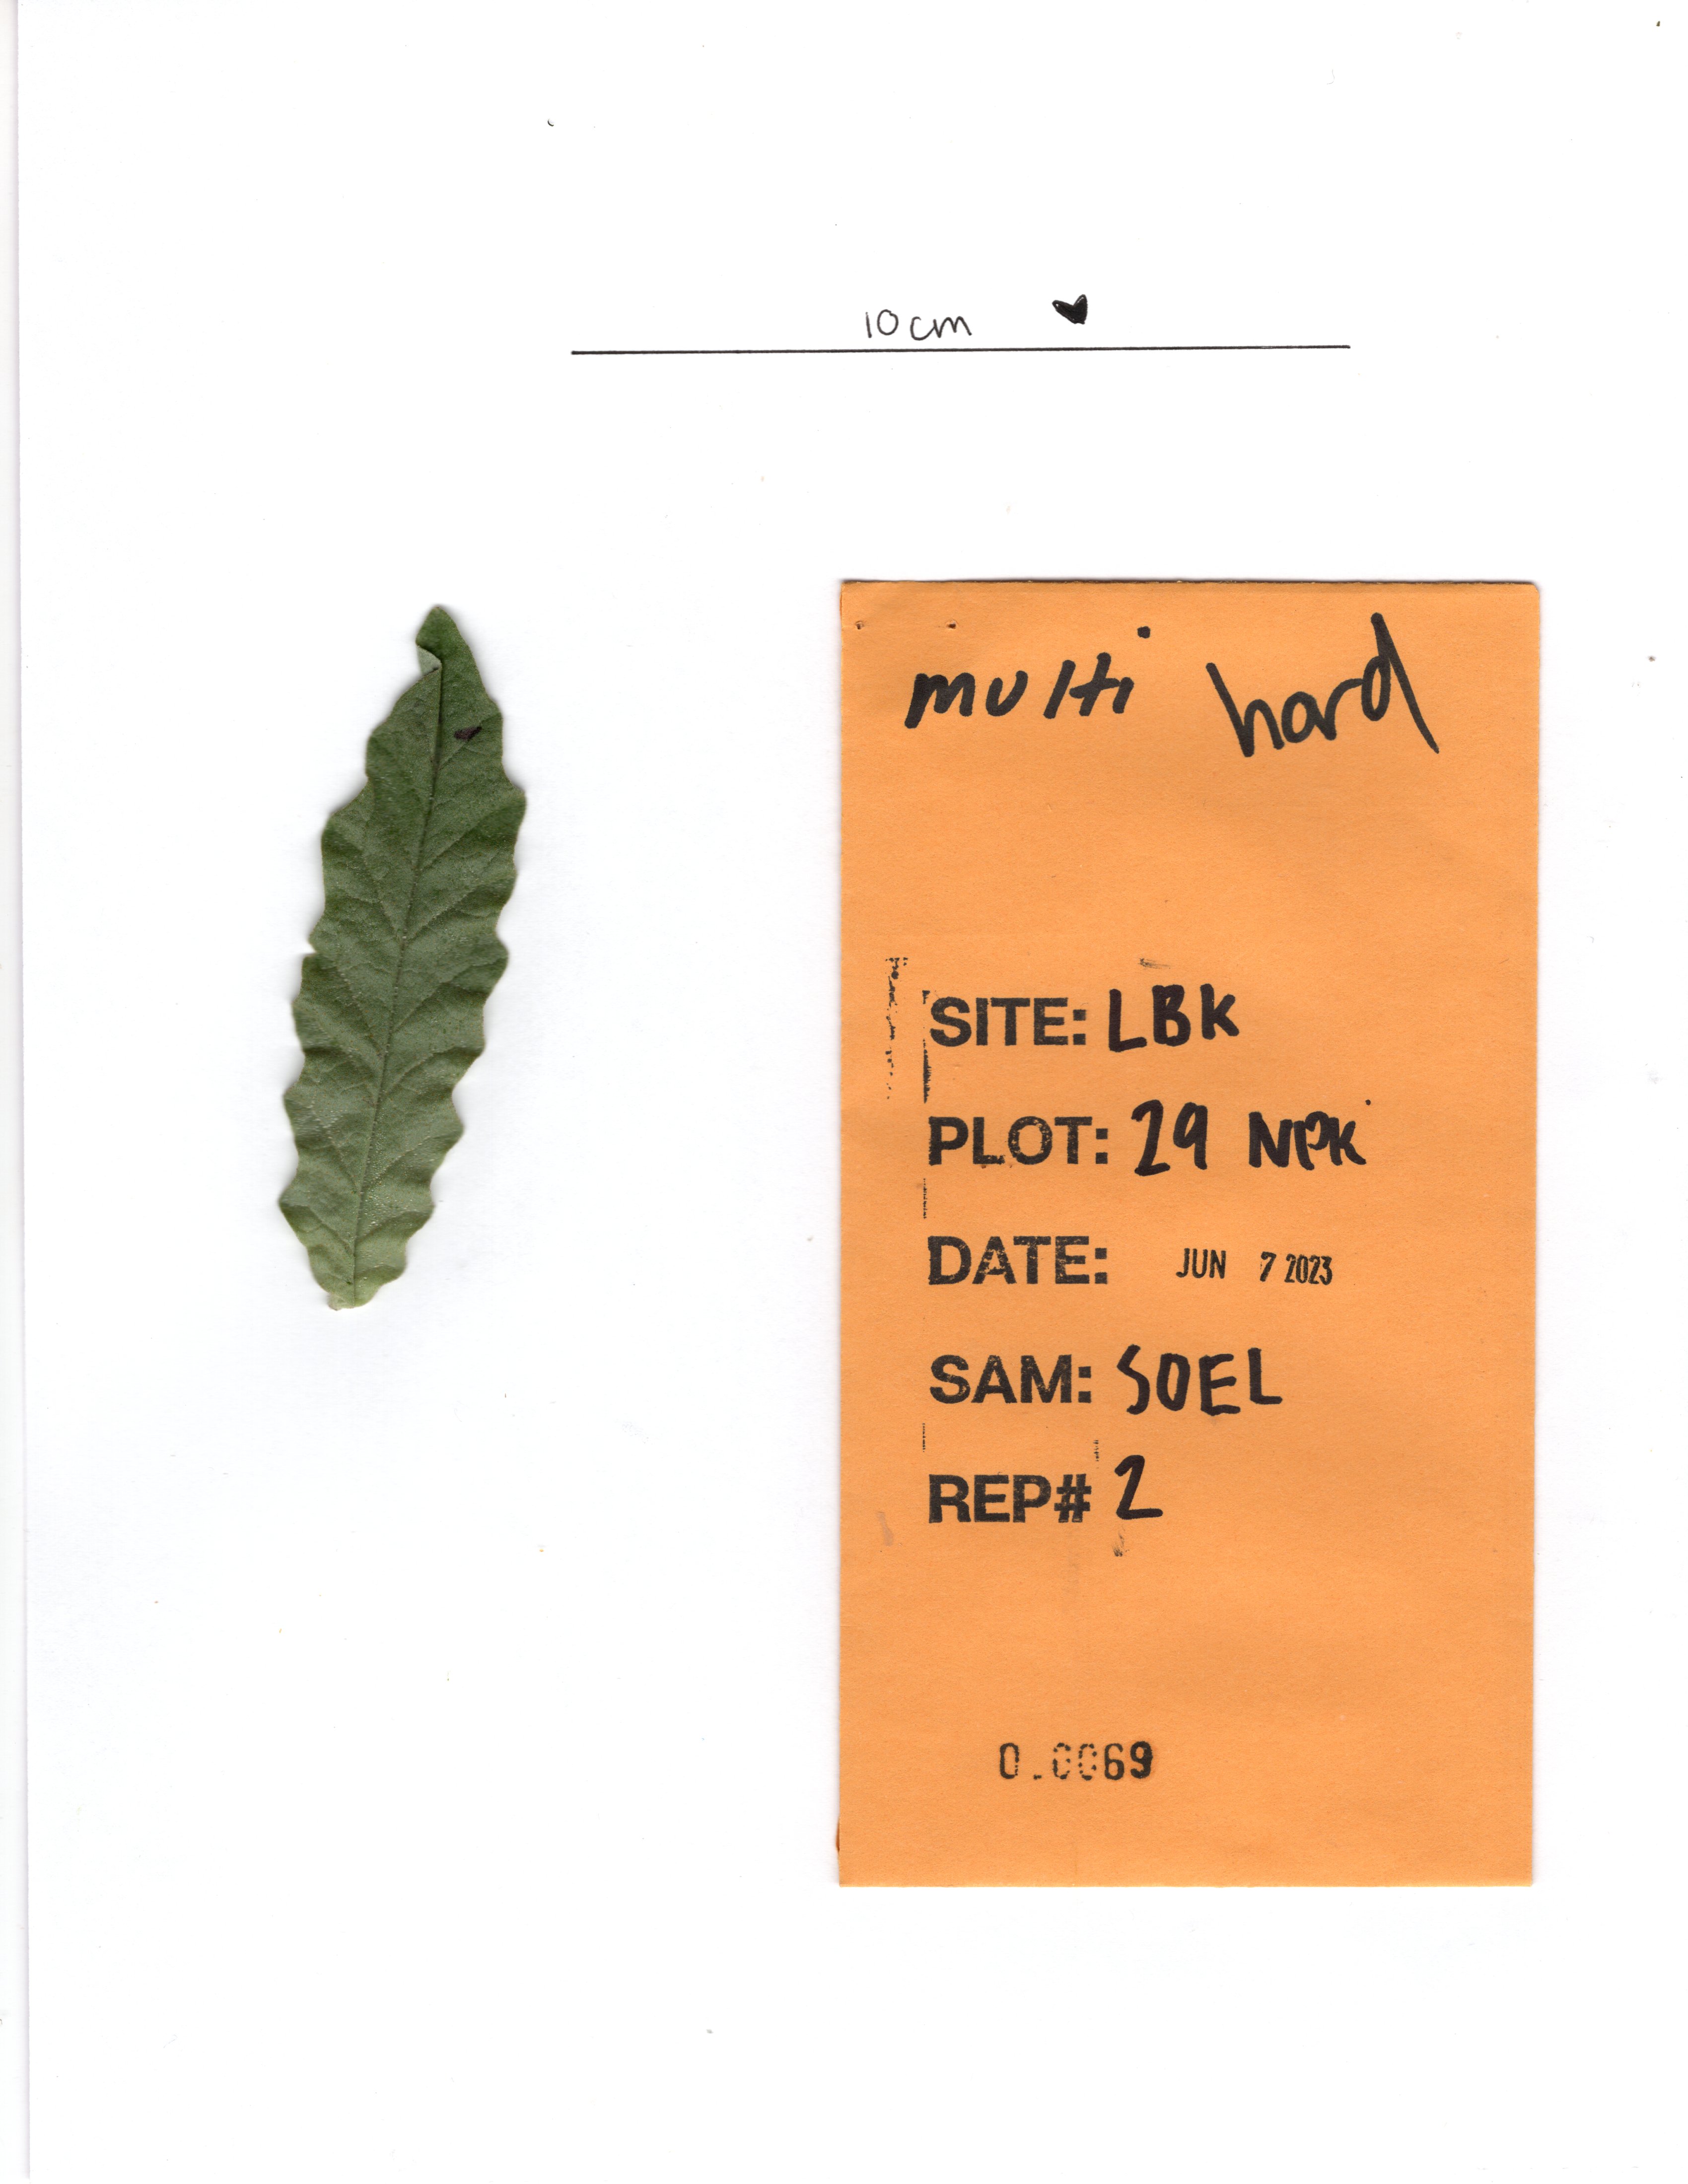 10cm
multi hard
SITE: LBK
PLOT: 29 NPK
DATE: JUN 7 2023
SAM: SOEL
REP# 2
0.0069